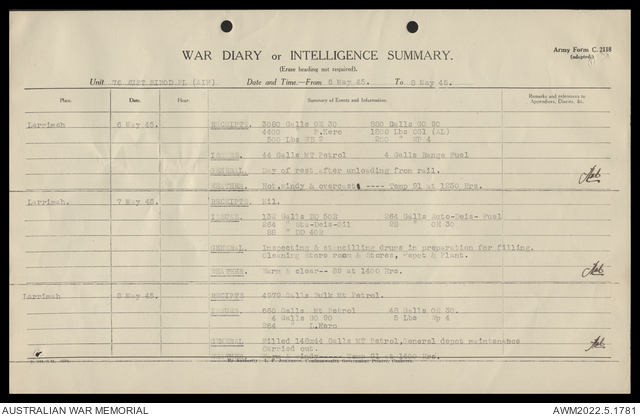 Army Form C. 2118
(adapted)
WAR DIARY or INTELLIGENCE SUMMARY.
(Erase heading not required).
Unit 76 SUST SIPOD.PL (AIF) Date and Time—From 6 May 45. To 8 May 45.
Place. Date. Hour. Summary of Events and Information. Remarks and references to Appendices, Diaries, &c.
Larrimah 6 May 45. RECEIPTS. 3080 Galls OE 30 880 Galls GO 90
4400 P.Kero 1800 Lbs CG1 (AL)
500 Lbs 250 " WP 4
ISSUES. 44 Galls MT Petrol 4 Galls Range Fuel
GENERAL. Day of rest after unloading from rail.
WEATHER. Hot, windy & overcast ---- Temp 91 at 1230 Hrs.
Larrimah. 7 May 45. RECEIPTS. Nil.
ISSUES. 132 Galls DO 50R 264 Galls Auto-Deis- Fuel
264 " Sta-Deis-Oil 22 " OE 30
22 " DO 40R
GENERAL. Inspecting & stencilling drums in preparation for filling.
Cleaning Store room & Stores, Depot & Plant.
WEATHER. Warm & clear-- 89 at 1400 Hrs.
Larrimah 8 May 45. RECEIPTS 4979 Galls Bulk Mt Petrol.
ISSUES. 660 Galls Mt Petrol 48 Galls OE 30.
4 Galls GO 90 5 Lbs Wp 4
264 " L.Kero
GENERAL Filled 140x44 Galls MT Petrol, General depot maintenance
Carried out.
WEATHER. Warm & windy----- Temp 91 at 1400 Hrs.
AUSTRALIAN WAR MEMORIAL AWM2022.5.1781